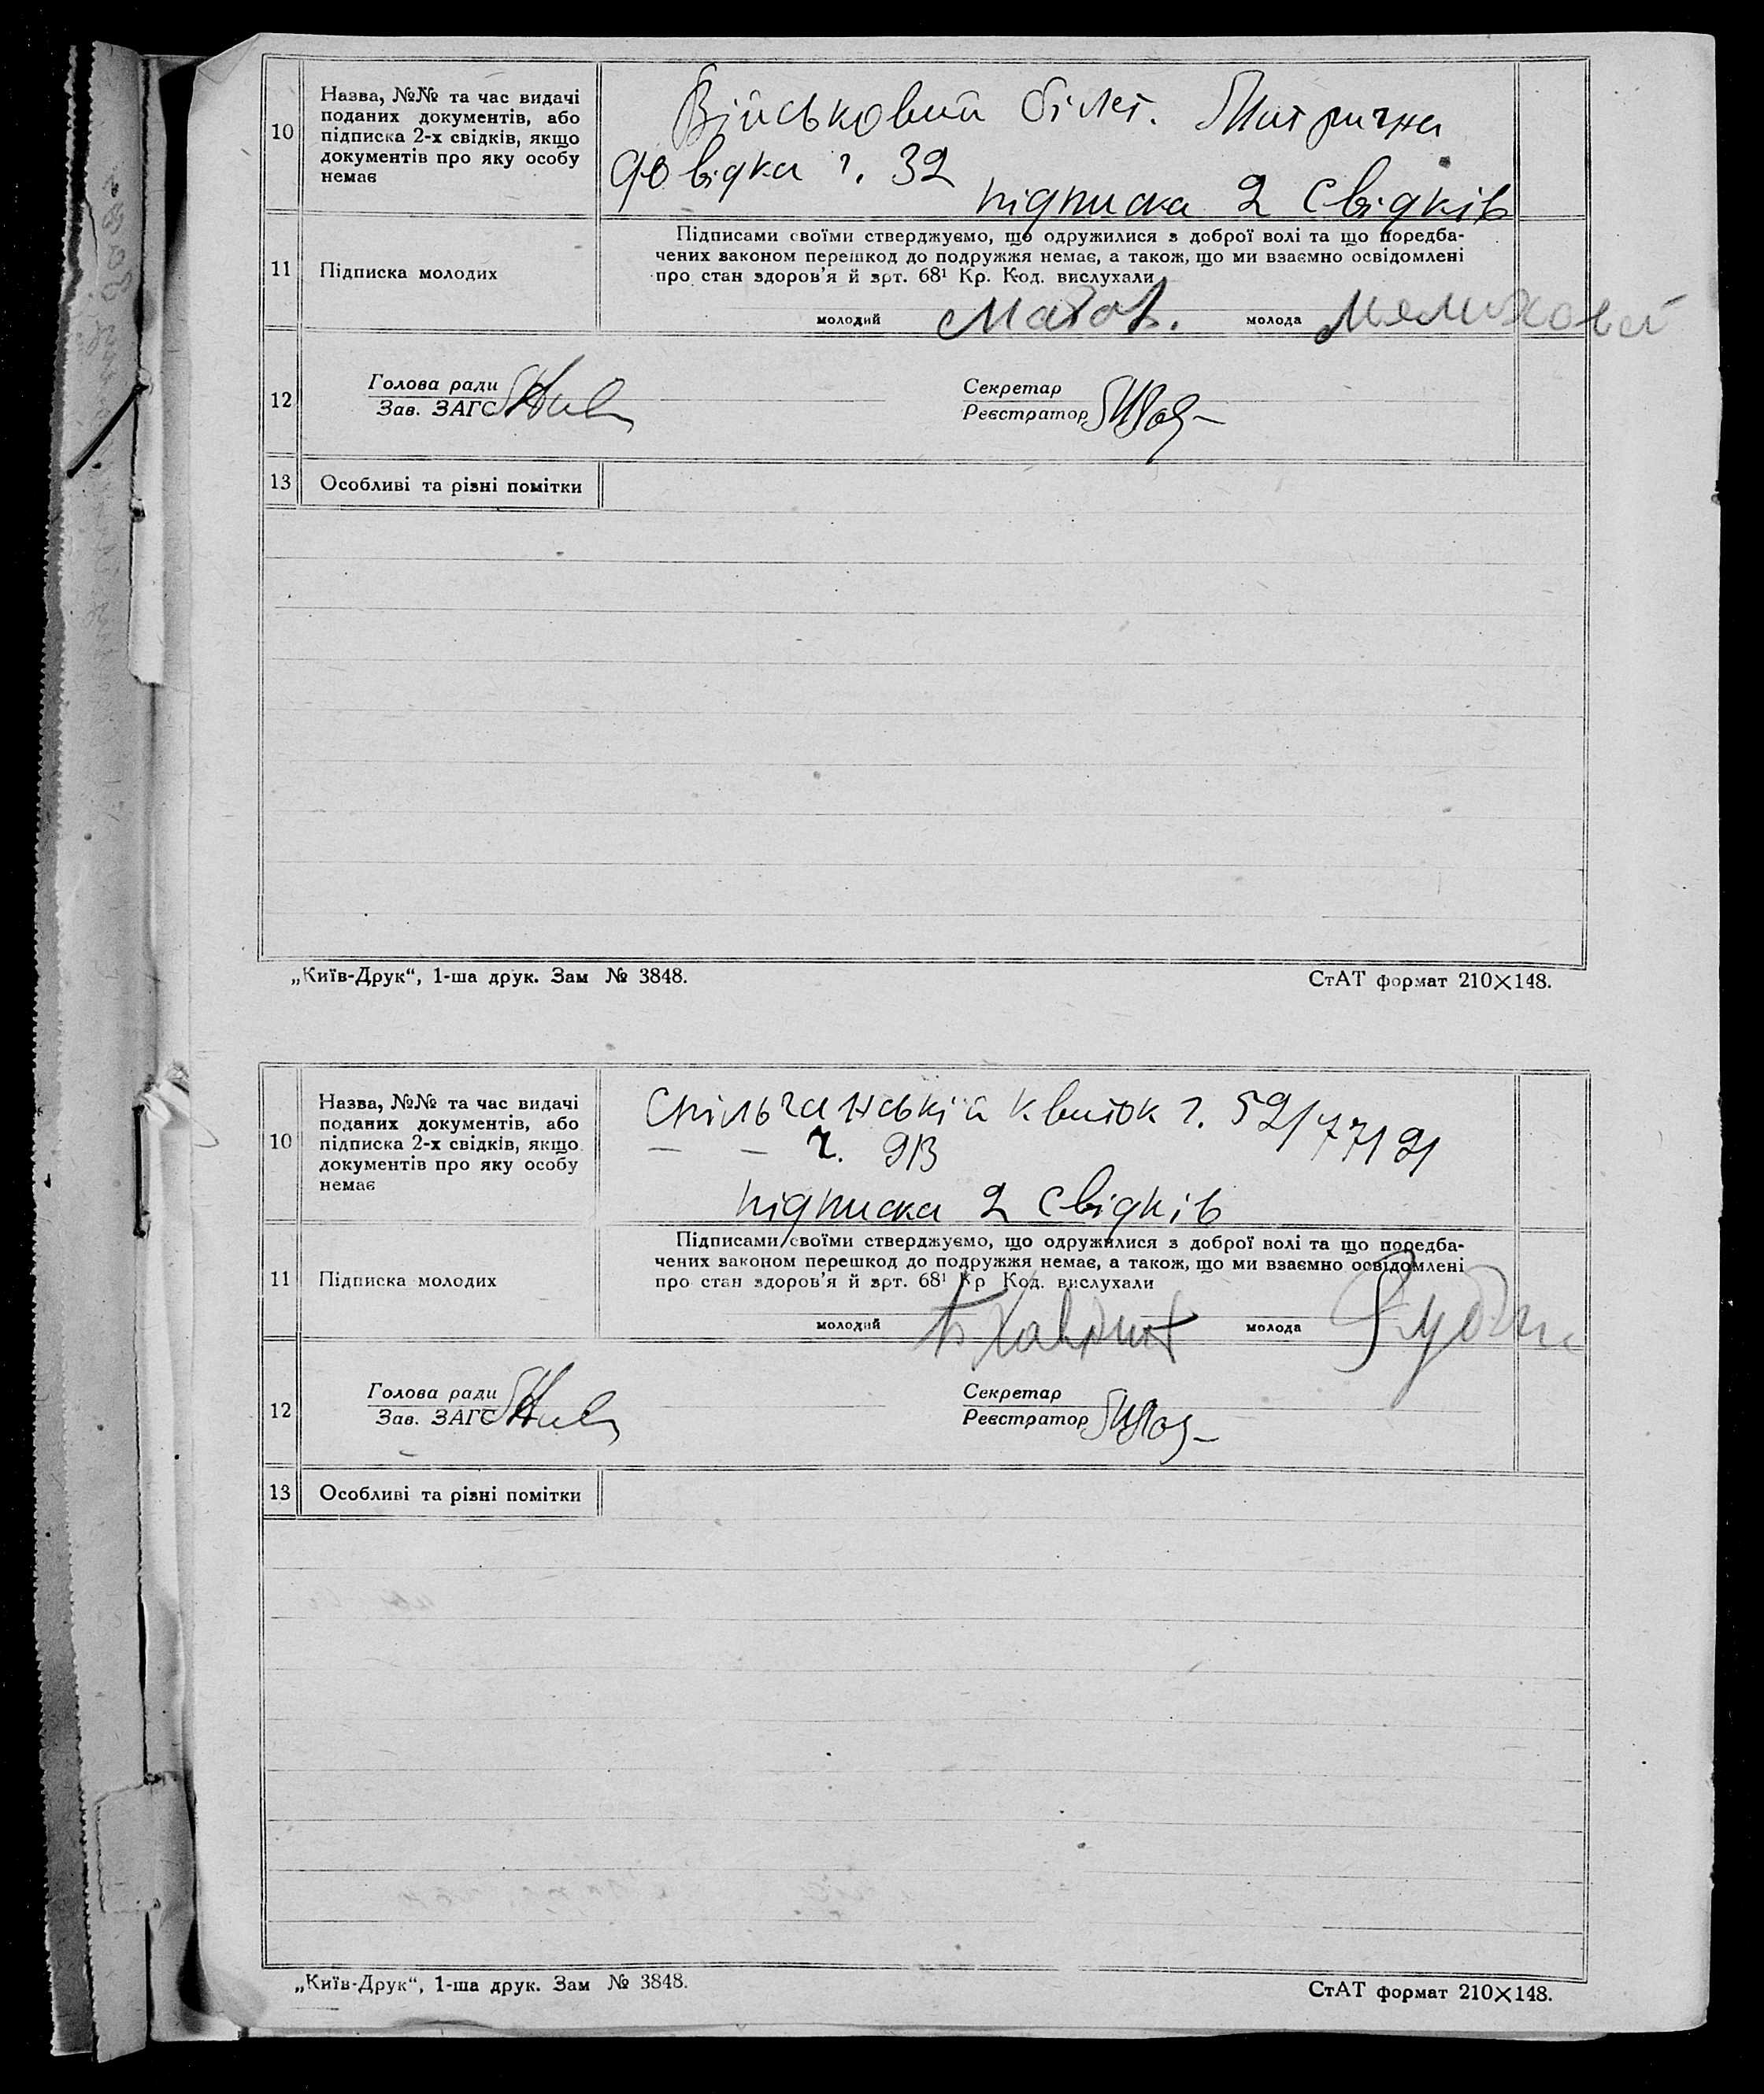 10
Назва, №№ та час видачі
поданих документів, або
підписка 2-х свідків, якщо
документів про яку особу
немає
Військовий білет. Митрична
довідка ч. 32
підписка 2 свідків
11
Підписка молодих
Підписами своїми стверджуємо, що одружилися з доброї волі та що поредба-
чених законом перешкод до подружжя немає, а також, що ми взаємно освідомлені
про стан здоров'я й врт. 68¹ Кр. Код. вислухали
молодий
молода
12
Голова ради
Зав. ЗАГС
Секретар
Реєстратор
13
Особливі та різні помітки
„Київ-Друк“, 1-ша друк. Зам № 3848.
СтАТ формат 210×148.
10
Назва, №№ та час видачі
поданих документів, або
підписка 2-х свідків, якщо
документів про яку особу
немає
Спільчанський квиток ч. 52/77/21
— — ч. 913
підписка 2 свідків
11
Підписка молодих
Підписами своїми стверджуємо, що одружилися з доброї волі та що поредба-
чених законом перешкод до подружжя немає, а також, що ми взаємно освідомлені
про стан здоров'я й врт. 68¹ Кр Код. вислухали
молодий
молода
12
Голова ради
Зав. ЗАГС
Секретар
Реєстратор
13
Особливі та різні помітки
„Київ-Друк“, 1-ша друк. Зам № 3848.
СтАТ формат 210×148.